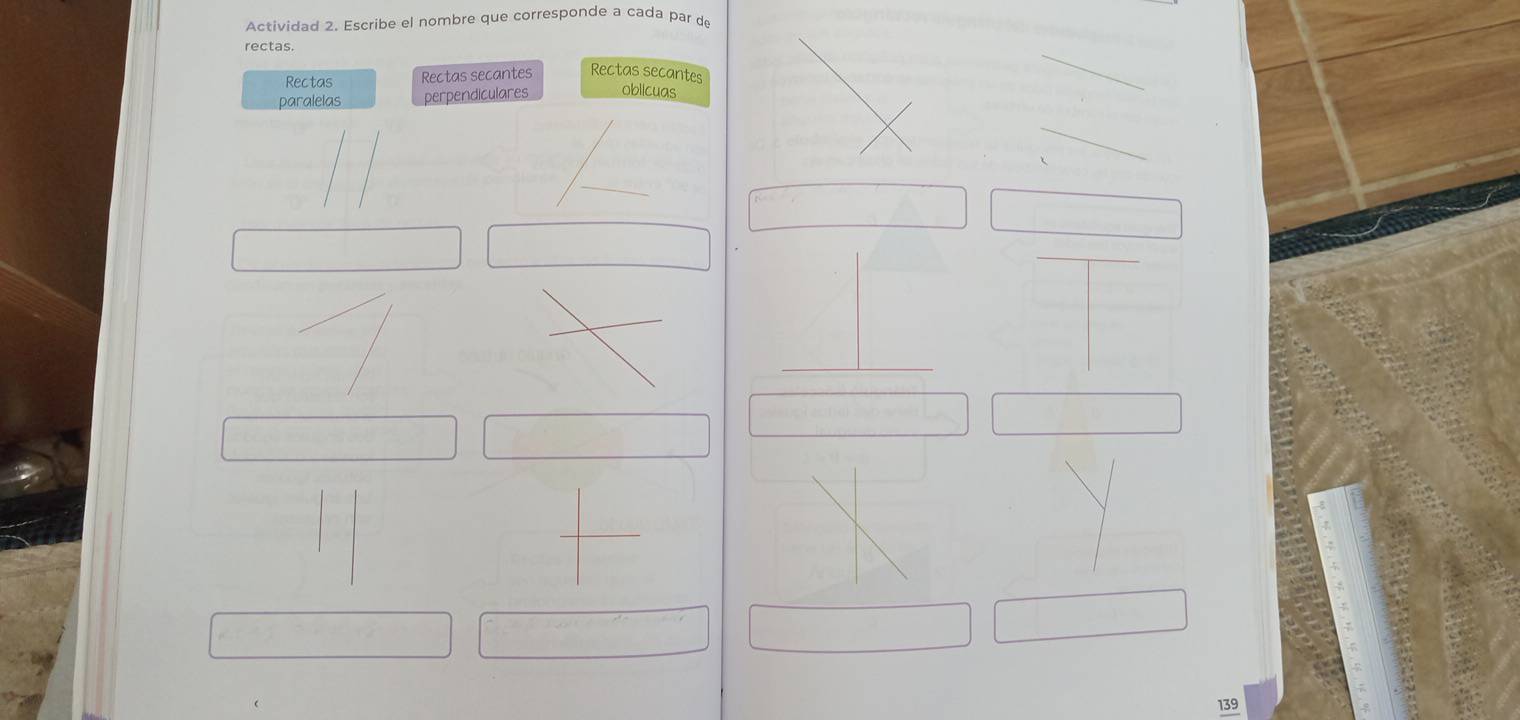 Actividad 2. Escribe el nombre que corresponde a cada par de
rectas.
Rectas
paralelas
Rectas secantes
perpendiculares
Rectas secantes
oblicuas
139